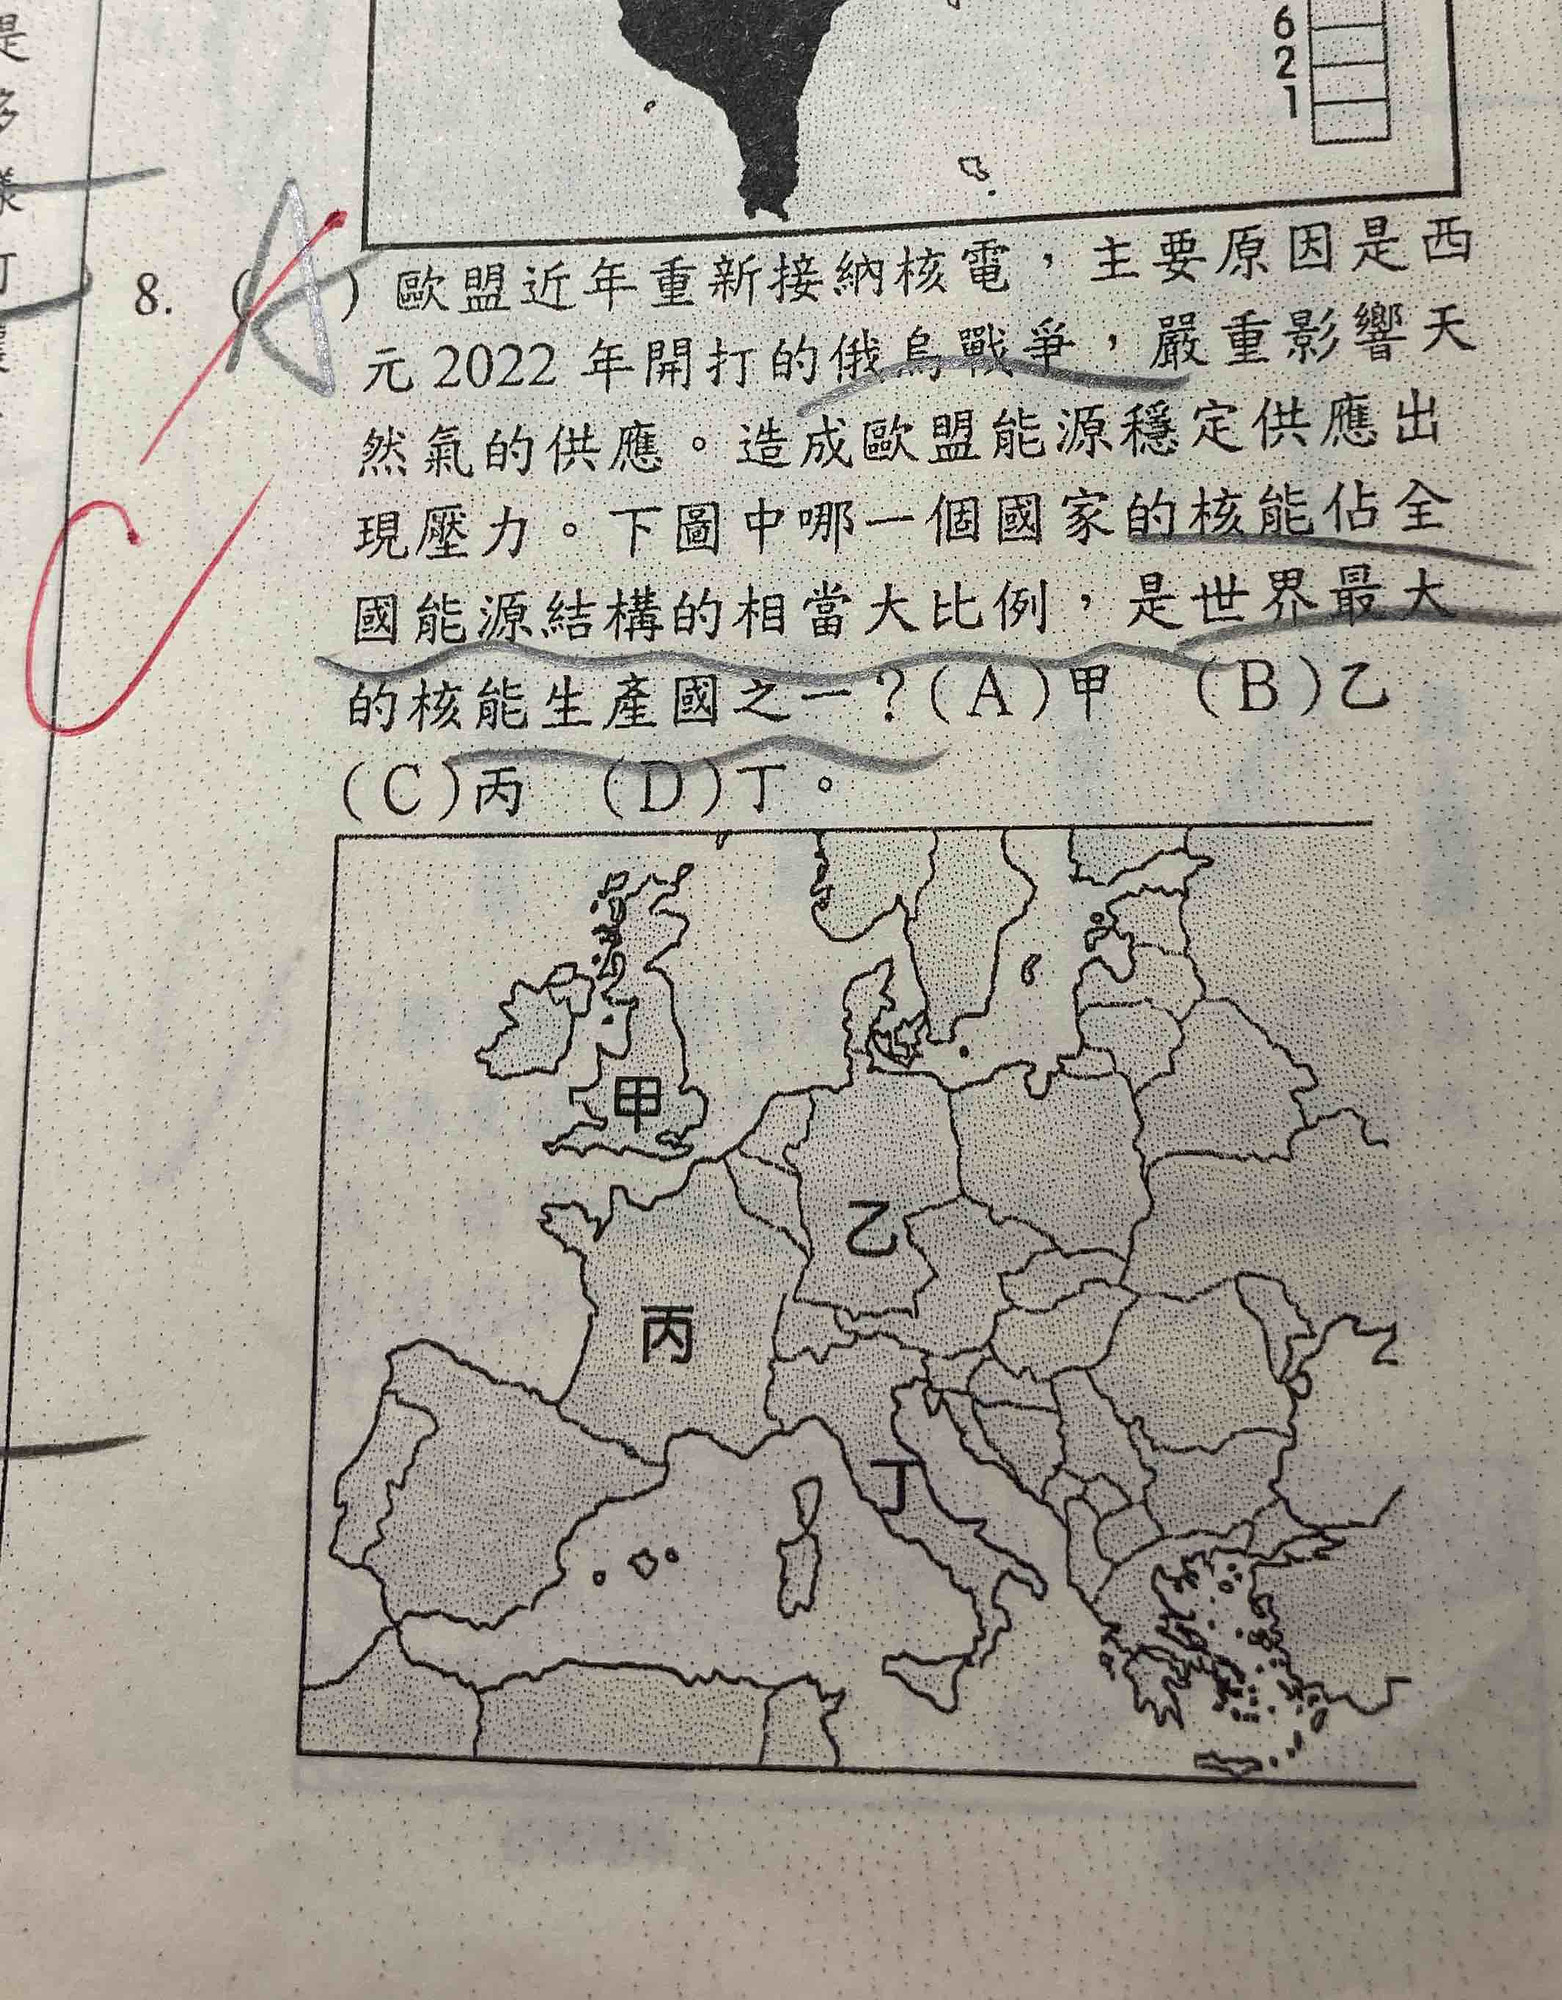 6
2
1
是
多
樣
8. (A) 歐盟近年重新接納核電，主要原因是西
元 2022 年開打的俄烏戰爭，嚴重影響天
然氣的供應。造成歐盟能源穩定供應出
現壓力。下圖中哪一個國家的核能佔全
國能源結構的相當大比例，是世界最大
的核能生產國之一？(A)甲 (B)乙
(C)丙 (D)丁。
C
甲
乙
丙
丁